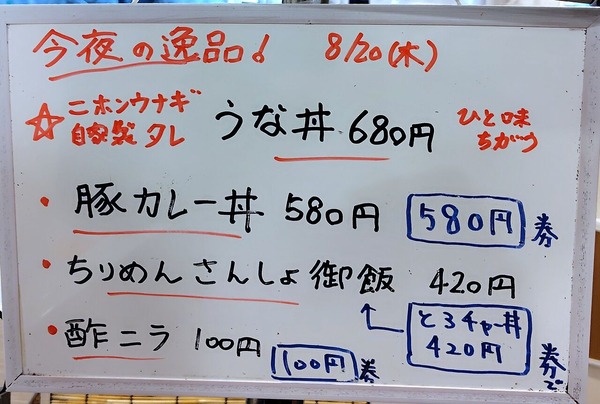 今夜の逸品! 8/20(木)
☆ニホンウナギ
自家製タレ
うな丼 680円
ひと味
ちがう
・豚カレー丼 580円 580円 券
・ちりめんさんしょ御飯 420円
とろチャー丼
420円 券で
・酢ニラ 100円 100円 券